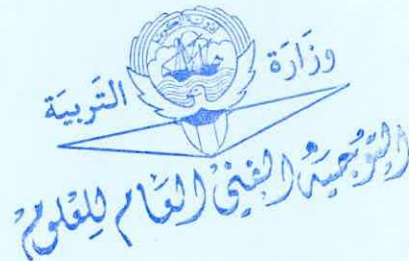 وزَارَة التَربيَة
التوجيه الفني العام للعلوم